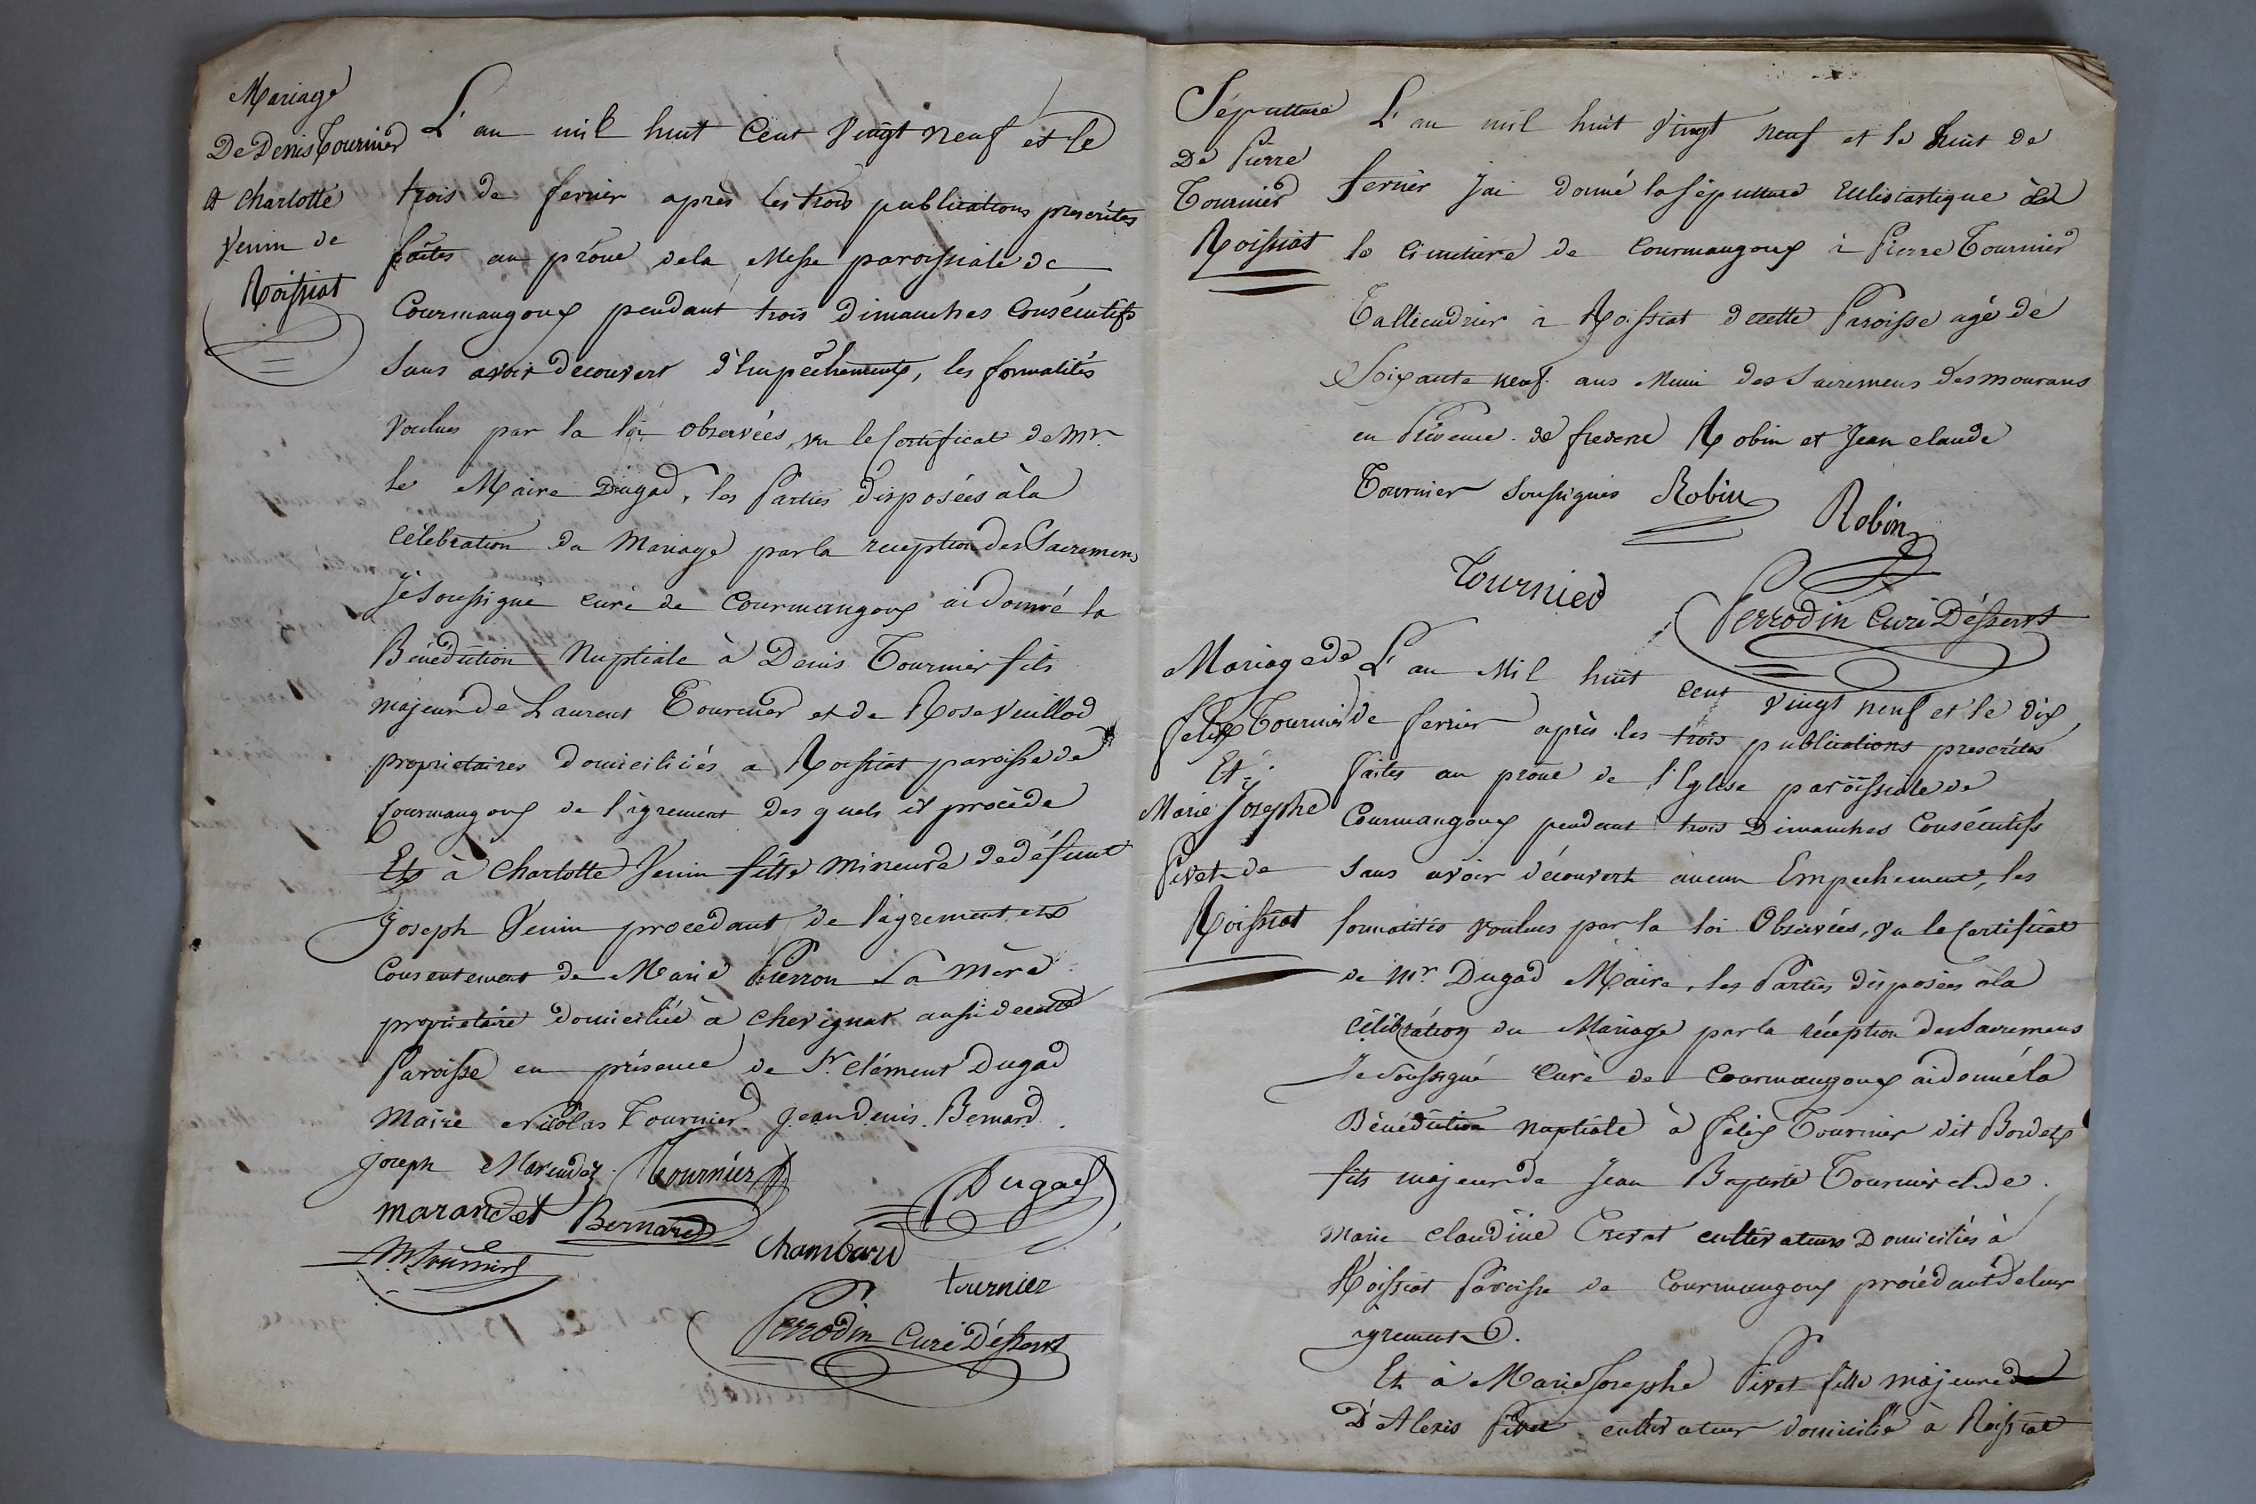 Mariage
De Denis Tournier
et charlotte
Venin de
Roissiat
L'an mil huit Cent vingt neuf et le
trois de fevrier après les trois publications prescrites
faites au prône dela Messe paroissiale de
Courmangoux pendant trois Dimanches Consécutifs
Sans avoir découvert d'Empêchements, les formalités
voulues par la loi observées, vu le Certificat de Mr.
le Maire Dugad, les Parties disposées à la
célébration du Mariage par la reception des Sacremens
Je Soussigné curé de Courmangoux ai donné la
Bénédiction Nuptiale à Denis Tournier fils
majeur de Laurent Tournier et de Rose Vuillod
proprietaires domiciliés a Roissiat paroisse de
Courmangoux de l'agrement des quels il procède
Et à Charlotte Venin fille mineure de défunt
Joseph Venin procedant de l'agrement et
Consentement de Marie Pierron Sa mère
propriétaire domiciliée à chevignat aussi de cette
Paroisse en présence de Sr. Clément Dugad
Maire Nicolas Tournier Jean Denis Bernard
Joseph Marendet Tournier
Dugad
marandet Bernard
Chambard
N Tournier
tournier
Perrodin Curé Déssert
Sépulture
De Pierre
Tournier
Roissiat
L'an mil huit vingt neuf et le huit de
fevrier J'ai donné la Sépulture Ecclésiastique
le cimetiere de Courmangoux à Pierre Tournier
à Roissiat de cette Paroisse agé de
Soixante neuf ans Muni des Sacremens des mourans
en Présence de Robin et Jean claude
Tournier Soussignés Robin
Robin
Tournier
Perrodin Curé Déssert
Mariage de
felix Tournier
Et
Marie Josephe
Pivet de
Roissiat
L'an Mil huit cent vingt neuf et le dix
de fevrier après les trois publications prescrites
faites au prône de l'Eglise paroissiale de
Courmangoux pendant trois Dimanches Consécutifs
Sans avoir découvert aucun Empechement, les
formalités voulues par la loi Observées, vu le Certificat
de Mr. Dugad Maire, les Parties disposées à la
célébration du Mariage par la réception des Sacremens
Je Soussigné Curé de Courmangoux ai donné la
Bénédiction Nuptiale à félix Tournier dit Bordet
fils majeur de Jean Baptiste Tournier et de
Marie Claudine cultivateurs Domiciliés à
Roissiat Paroisse de Courmangoux procédant de leur
agrement.
Et à Marie Josephe Pivet fille majeure de
D'Alexis Pivet cultivateur domicilié à Roissiat